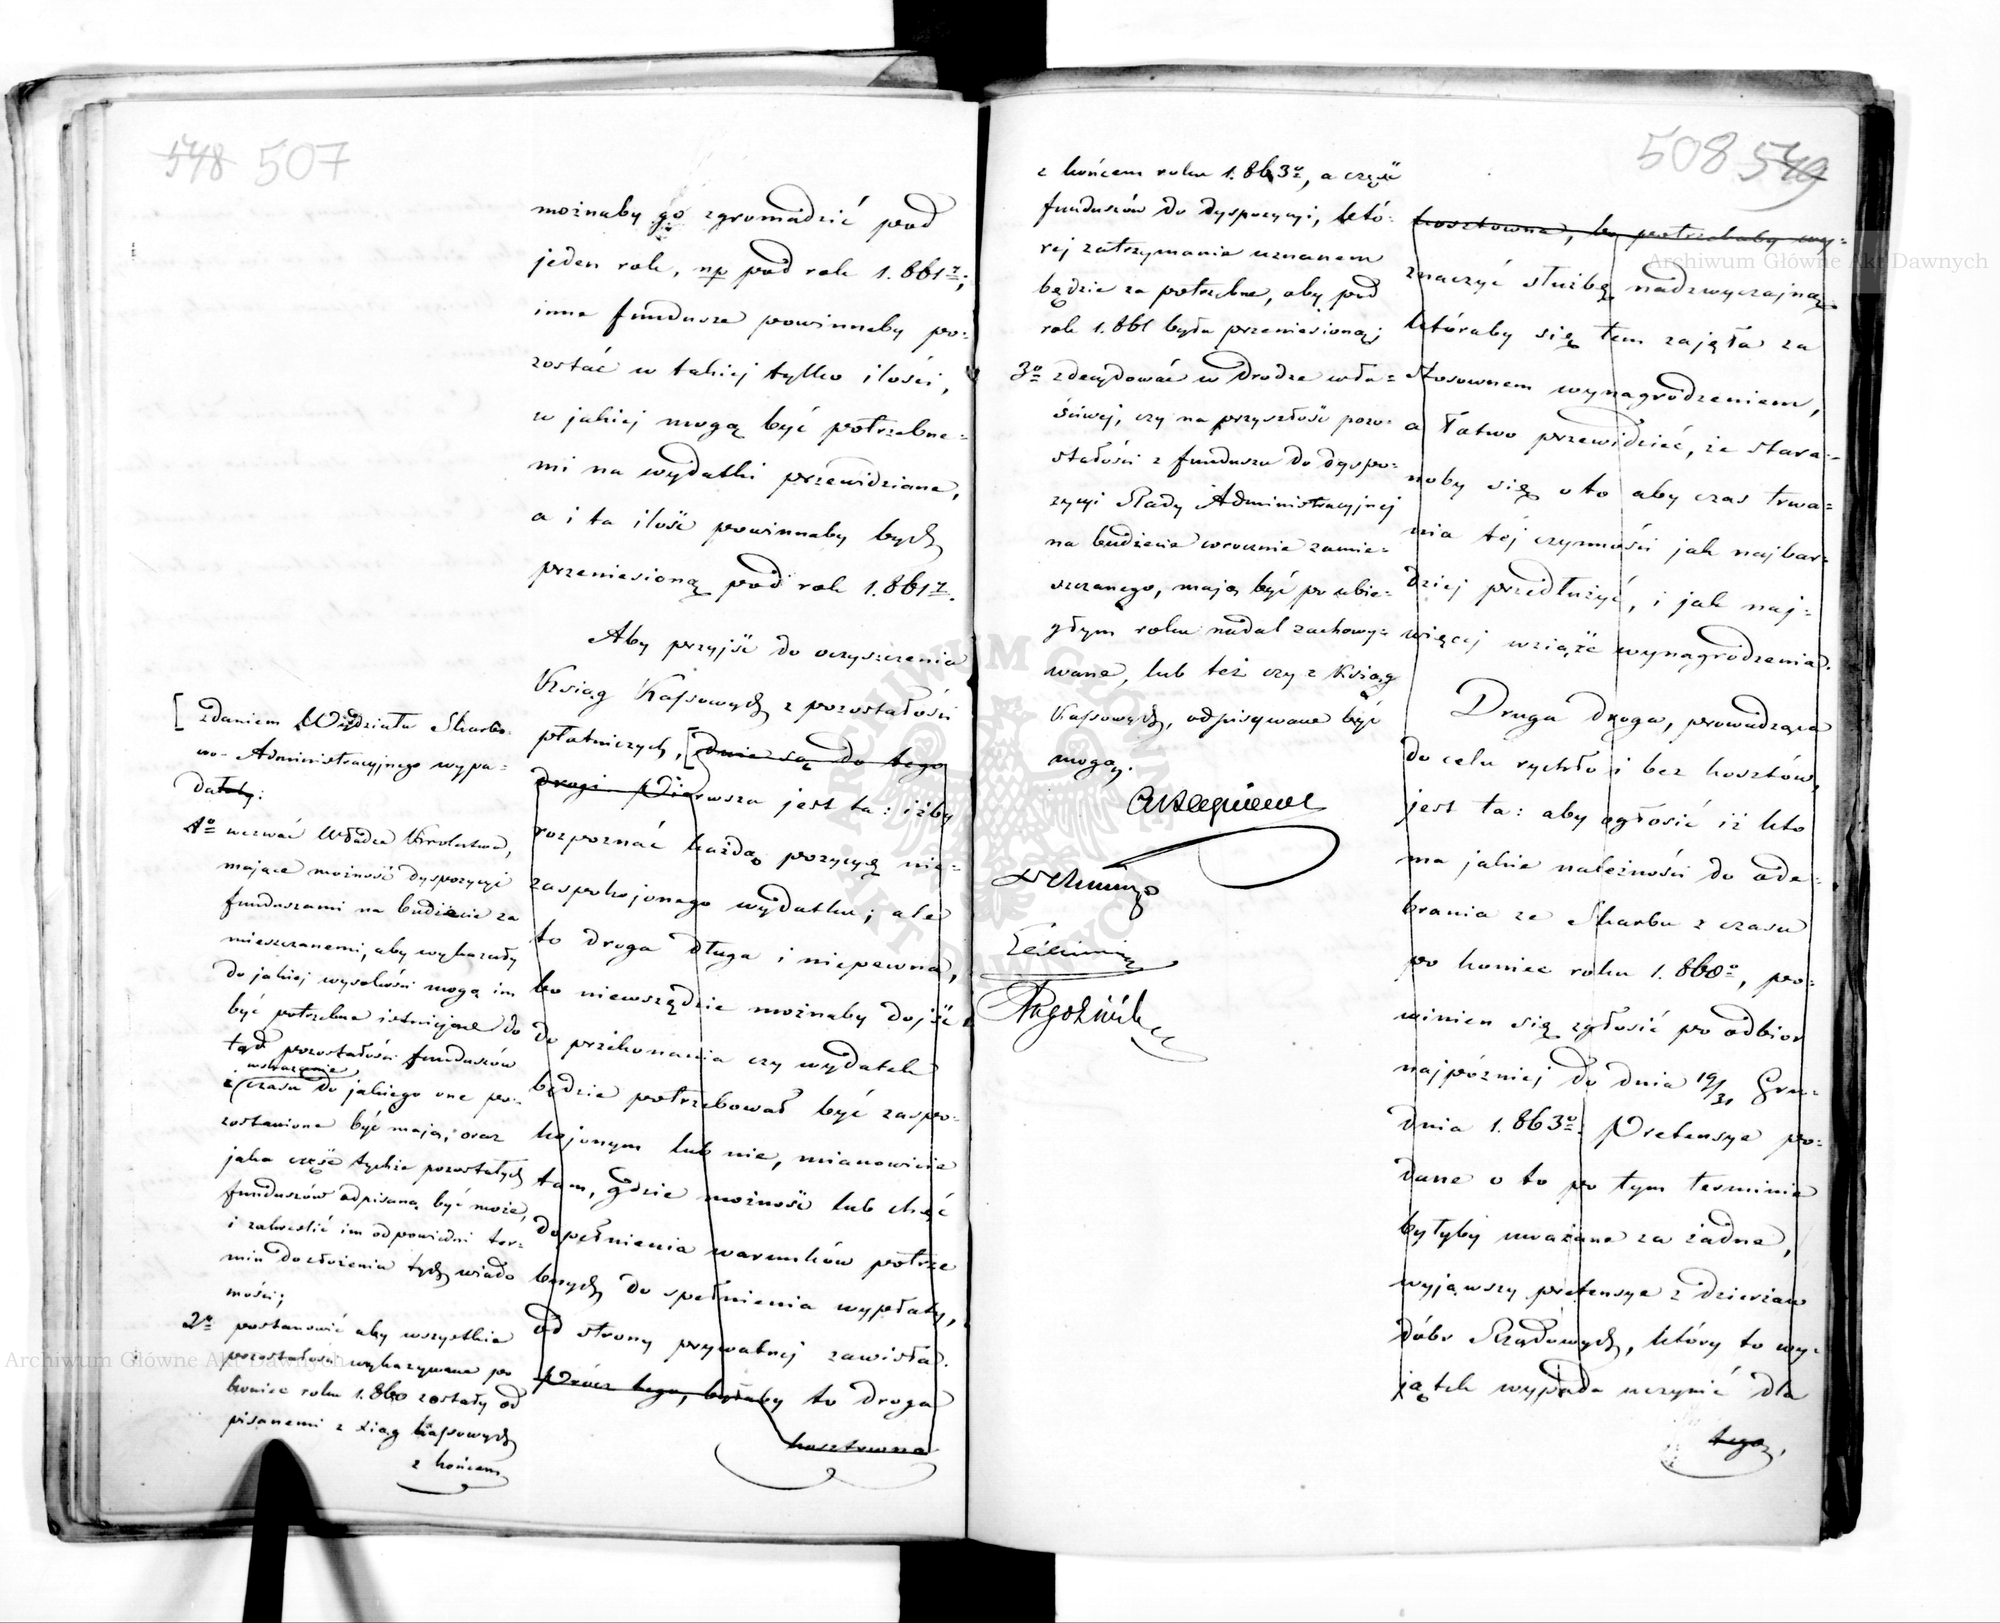 548 507
możnaby go zgromadzić pod
jeden rok, np pod rok 1.861r;
inne fundusze powinnaby po=
zostać w takiej tylko ilości,
w jakiej mogą być potrzebne=
mi na wydatki przewidziane,
a i ta ilość powinnaby bydź
przeniesioną pod rok 1.861r.
Aby przyjść do oczyszczenia
Ksiąg Kassowych z pozostałości
płatniczych, [dwie są do tego
drogi. Pierwsza jest ta: iżby
rozpoznać każdą pozycyę nie=
zaspokojonego wydatku; ale
to droga długa i niepewna,
bo niewszędzie możnaby dojść
do przekonania czy wydatek
będzie potrzebował być zaspo=
kojonym lub nie, mianowicie
tam, gdzie możność lub chęć
dopełnienia warunków potrze
bnych do spełnienia wypłaty,
od strony prywatnej zawisła.
Prócz tego, byłaby to droga
kosztowna
[zdaniem Wydziału Skarbo=
wo-Administracyjnego wypa=
dałoby:
1o wezwać Władze Królestwa,
mające możność dyspozycyi
funduszami na budżecie za
mieszczanemi, aby wykazały
do jakiej wysokości mogą im
być potrzebne istniejące do
tąd pozostałości funduszów
wskazanie
i czasu do jakiego one po=
zostawione być mają, oraz
jaka część tychże pozostałych
funduszów odpisaną być może,
i zakreślić im odpowiedni ter=
min do złożenia tych wiado
mości;
2o postanowić aby wszystkie
pozostałości wykazywane po
koniec roku 1.860 zostały od
pisanemi z xiąg kassowych
z końcem
508 549
z końcem roku 1.863o, a część
funduszów do dyspozycyi, któ=
rej zatrzymanie uznanem
będzie za potrzebne, aby pod
rok 1.861 była przeniesioną;
3o zdecydować w drodze wła=
ściwej, czy na przyszłość pozo=
stałości z funduszu do dyspo=
zycyi Rady Administracyjnej
na budżecie corocznie zamie=
szczanego, mają być po ubie=
głym roku nadal zachowy=
wane, lub też czy z Ksiąg
Kassowych, odpisywane być
mogą.
kosztowna, bo potrzebaby wy=
znaczyć służbę nadzwyczajną
któraby się tem zajęła za
stosownem wynagrodzeniem,
a łatwo przewidzieć, że stara=
noby się o to aby czas trwa=
nia tej czynności jak najbar=
dziej przedłużyć, i jak naj=
więcej wziąść wynagrodzenia.
Druga droga, prowadząca
do celu rychło i bez kosztów,
jest ta: aby ogłosić iż kto
ma jakie należności do ode=
brania ze Skarbu z czasu
po koniec roku 1.860o, po=
winien się zgłosić po odbior
najpóźniej do dnia 19/31 Gru=
dnia 1.863o. Pretensye po=
dane o to po tym terminie
byłyby uważane za żadne,
wyjąwszy pretensye z dzierżaw
dóbr Rządowych, który to wy=
jątek wypada uczynić dla
tego,
Archiwum Główne Akt Dawnych
Archiwum Główne Akt Dawnych
ARCHIWUM GŁÓWNE
AKT DAWNYCH